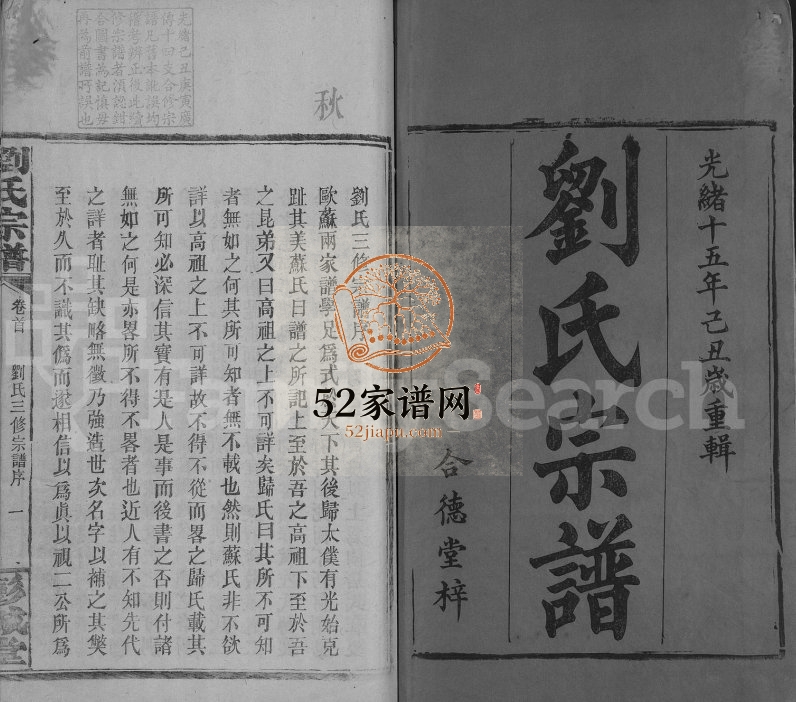 光緒十五年己丑歲重輯
劉氏宗譜
合德堂梓
秋
光緒己丑庚寅慶
合圖書為記慎毋
再為前譜所誤也
劉氏三修宗譜序
歐蘇兩家譜學足爲式於天下其後歸太僕有光始克
趾其美蘇氏曰譜之所記上至於吾之高祖下至於吾
之昆弟又曰高祖之上不可詳矣歸氏曰其所不可知
者無如之何其所可知者無不載也然則蘇氏非不欲
詳以高祖之上不可詳故不得不從而畧之歸氏載其
所可知必深信其實有是人是事而後書之否則付諸
無如之何是亦畧所不得不畧者也近人有不知先代
之詳者耻其缺略無徵乃強造世次名字以補之其獘
至於久而不識其僞而遂相信以爲眞以視二公所爲
劉氏宗譜
卷首
劉氏三修宗譜序
一
彭城堂
FamilySearch
52家谱网
52jiapu.com